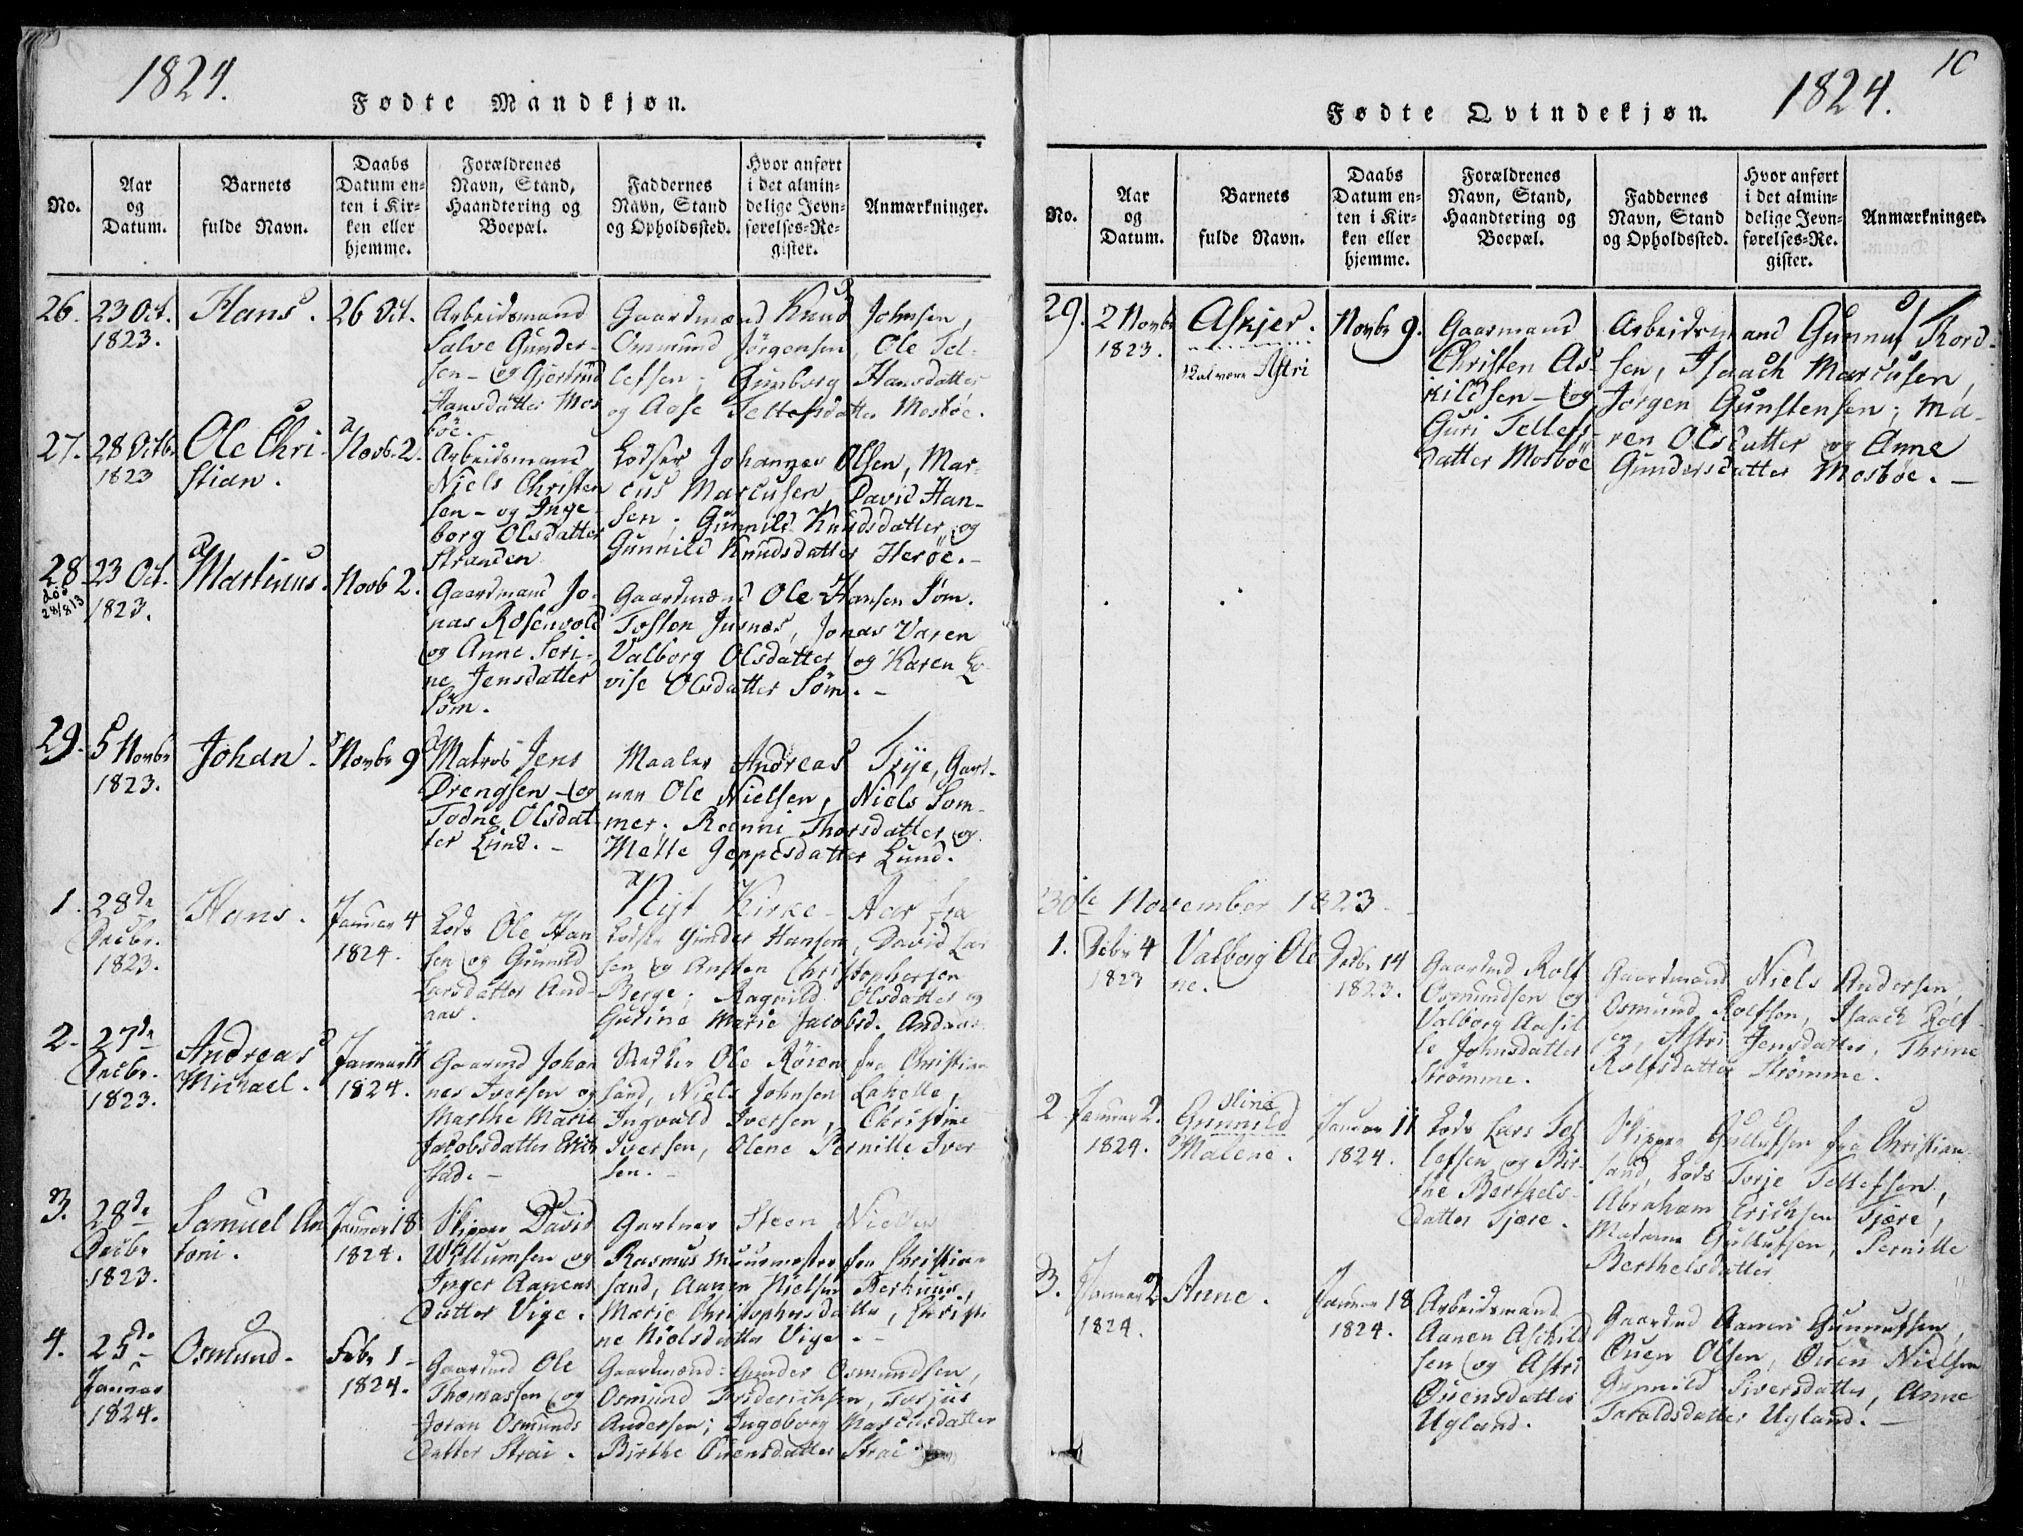 1824.
Fødte Mandkjøn.
No.
Aar
og
Datum.
Barnets
fulde Navn.
Daabs
Datum en-
ten i Kir-
ken eller
hjemme.
Forældrenes
Navn, Stand,
Haandtering og
Boepæl.
Faddernes
Navn, Stand
og Opholdssted.
Hvor anført
i det almin-
delige Jevn-
førelses-Re-
gister.
Anmærkninger.
26. 23 Oct.
1823.
Hans.
26 Oct.
Arbeidsmand
Salve Gunder-
sen - og Gjertrud
Hansdatter Mos
böe.
Gaardmænd Knud Johnsen,
Osmund Jörgensen, Ole Tel-
lefsen; Gunborg Hansdatter
og Aase Tellefsdatter Mosböe.
27. 28 Octbr
1823
Ole Chri-
stian.
Novb. 2.
Arbeidsmand
Niels Christen
sen - og Inge-
borg Olsdatter
Stranden
Lodser Johannes Olsen, Mar-
cus Marcusen, David Han-
sen; Gunnild Knudsdatter og
Gunnild Knudsdatter Heröe. -
28. 23 Oct.
död
28/8 13
1823.
Martinus.
Novb 2.
Gaardmand Jo-
nas Rosenvold
og Anne Seri-
ne Jensdatter
Söm.
Gaardmænd Ole Hansen Söm.
Tosten Jusnes, Jonas Varen
Valborg Olsdatter og Karen Lo-
vise Olsdatter Söm. -
29. 5 Novbr
1823.
Johan.
Novbr 9
Matros Jens
Drengsen - og
Todne Olsdat-
ter Lund. -
Maaler Andreas Trye, Gart-
ner Ole Nielsen, Niels Som-
mer; Rønni Thorsdatter og
Mette Jeppesdatter Lund.
Nyt Kirke-Aar fra
1. 28de
Decbr.
1823.
Hans.
Januar 4
1824.
Lods Ole Han
sen og Gunnild
Larsdatter And-
aas.
Lodser Gunder Hansen, David Lar
sen og Austen Christophersen
Berge; Ragnild Olsdatter og
Gurine Marie Jacobsd. Andaas.
2. 27de
Decbr.
1823.
Andreas
Michael.
Januar 11
1824.
Gaarmd Johan
nes Iversen og
Marthe Marie
Jacobsdatter
stad. -
Ole Röien fra Christian
sand, Niels Johnsen
Ingvald Iversen, Christine
Iversen, Olene Pernille Iver
sen. -
3. 28de
Decbr
1823.
Samuel An
toni.
Januar 18
1824.
Skipper David
Willumsen og
Inger Aanens
datter Vige.
Gartner Steen Nielsen
Rasmus Muurmester fra Christian
sand, Aanen Nielsen
Marie Christophersdatter, Christi
ne Nielsdatter Vige. -
4. 25de
Januar
1824.
Osmund.
Febr 1
1824.
Gaardmd Ole
Thomassen og
Joran Osmunds
datter Strai.
Gaardmænd: Gunder Osmundsen,
Osmund Friderichsen, Torjus
Andersen; Ingeborg Marcusdatter
Birthe Ouensdatter Strai.
10
1824.
Fødte Qvindekjøn.
No.
Aar
og
Datum.
Barnets
fulde Navn.
Daabs
Datum en-
ten i Kir-
ken eller
hjemme.
Forældrenes
Navn, Stand,
Haandtering og
Boepæl.
Faddernes
Navn, Stand
og Opholdssted.
Hvor anført
i det almin-
delige Jevn-
førelses-Re-
gister.
Anmærkninger.
29. 2 Novbr
1823.
Askjer.
skal være Astri
Novbr 9.
Gaarmand
Christen As-
kildsen - og
Guri Tellefs-
datter Mosböe
Arbeidsmand Gunnuf Tord-
sen, Isaach Marcusen,
Jörgen Gunstensen; Ma-
ren Olsdatter og Anne
Gundersdatter Mosböe. -
30te November 1823 -
1. Decbr 4
1823
Valborg Ole
ne.
Decbr 14
1823.
Gaardmd Rolf
Osmundsen og
Valborg Aasil-
le Johnsdatter
Strömme.
Gaardmænd Niels Andersen,
Osmund Rolfsen, Isaach Rolf
sen, Astri Jensdatter, Thrine
Rolfsdatter Strömme.
2 Januar 2.
1824.
Stine
Gunnild
Malene.
Januar 11
1824.
Lods Lars Tel
lefsen og Bir-
the Berthels-
datter Tjære.
Skipper Gullufsen fra Christian
sand, Lods Torje Tellefsen,
Abraham Erichsen Tjære,
Madame Gullufsen, Pernille
Berthelsdatter
3. Januar 2
1824.
Anne.
Januar 18
1824.
Arbeidsmand
Aanen Aschild
sen og Astri
Ouensdatter
Ugland.
Gaardmd Aanen Gunnufsen,
Ouen Olsen, Ouen Nielsen
Gunnild Siversdatter, Anne
Taraldsdatter Ugland. -